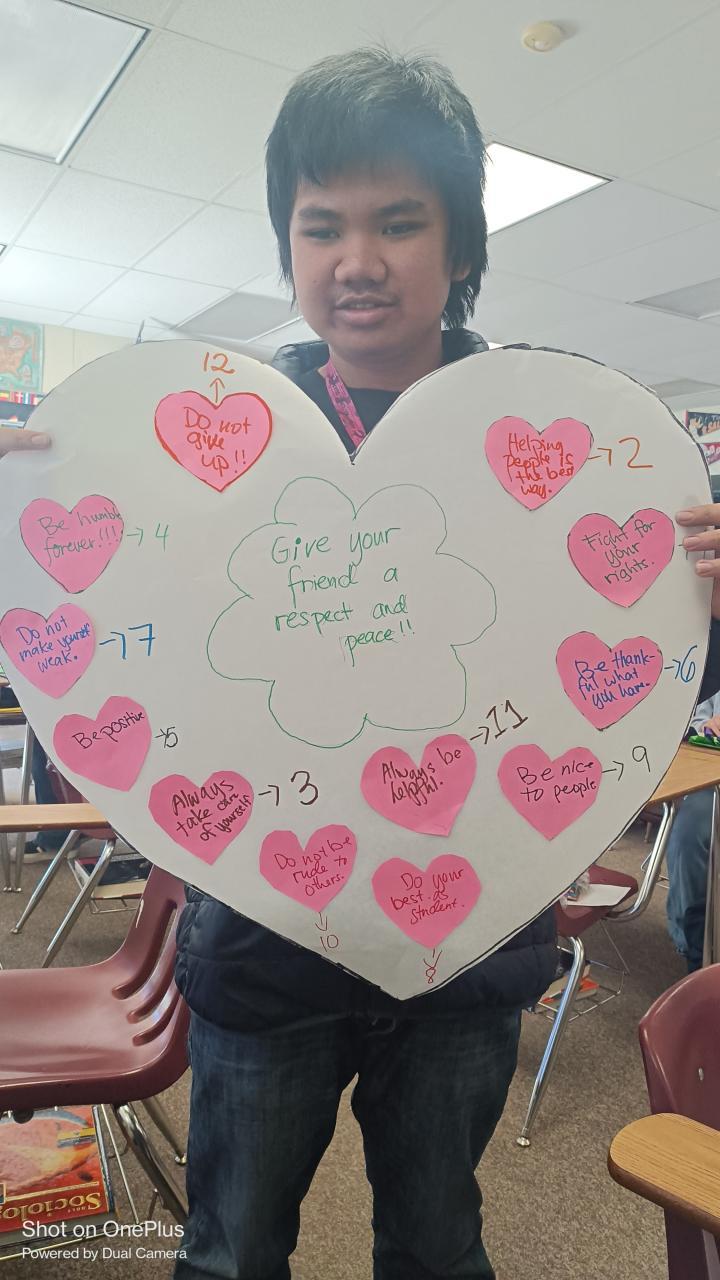 12
Do not
give
up!!
Helping
people is
the best
way.
2
Be humble
forever!!!
4
Fight for
your
rights.
Give your
friend a
respect and
peace!!
Do not
make yourself
weak.
7
Be thank-
ful what
you have.
6
Be positive
5
Always
take care
of yourself
3
Always be
helpful!
11
Be nice
to people
9
Do not be
rude to
others.
10
Do your
best as
student.
8
Sociolo
Shot on OnePlus
Powered by Dual Camera